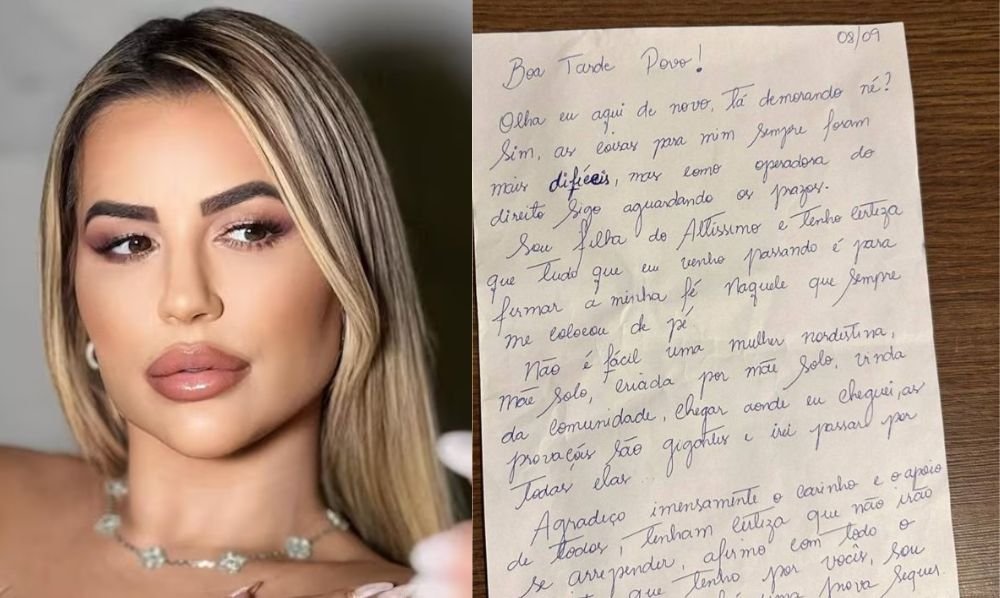 08/09
Boa Tarde Povo!
Olha eu aqui de novo, tá demorando né?
Sim, as coisas para mim sempre foram
mais difíceis, mas como operadora do
direito sigo aguardando os prazos.
Sou filha do Altíssimo e tenho certeza
que tudo que eu venho passando é para
firmar a minha fé Naquele que sempre
me colocou de pé.
Não é fácil uma mulher nordestina,
mãe solo, criada por mãe solo, vinda
da comunidade, chegar aonde eu cheguei, as
provações são gigantes e irei passar por
todas elas...
Agradeço imensamente o carinho e o apoio
de todos, tenham certeza que não irão
se arrepender, afirmo com todo o
que tenho por vocês, sou
uma prova sequer.